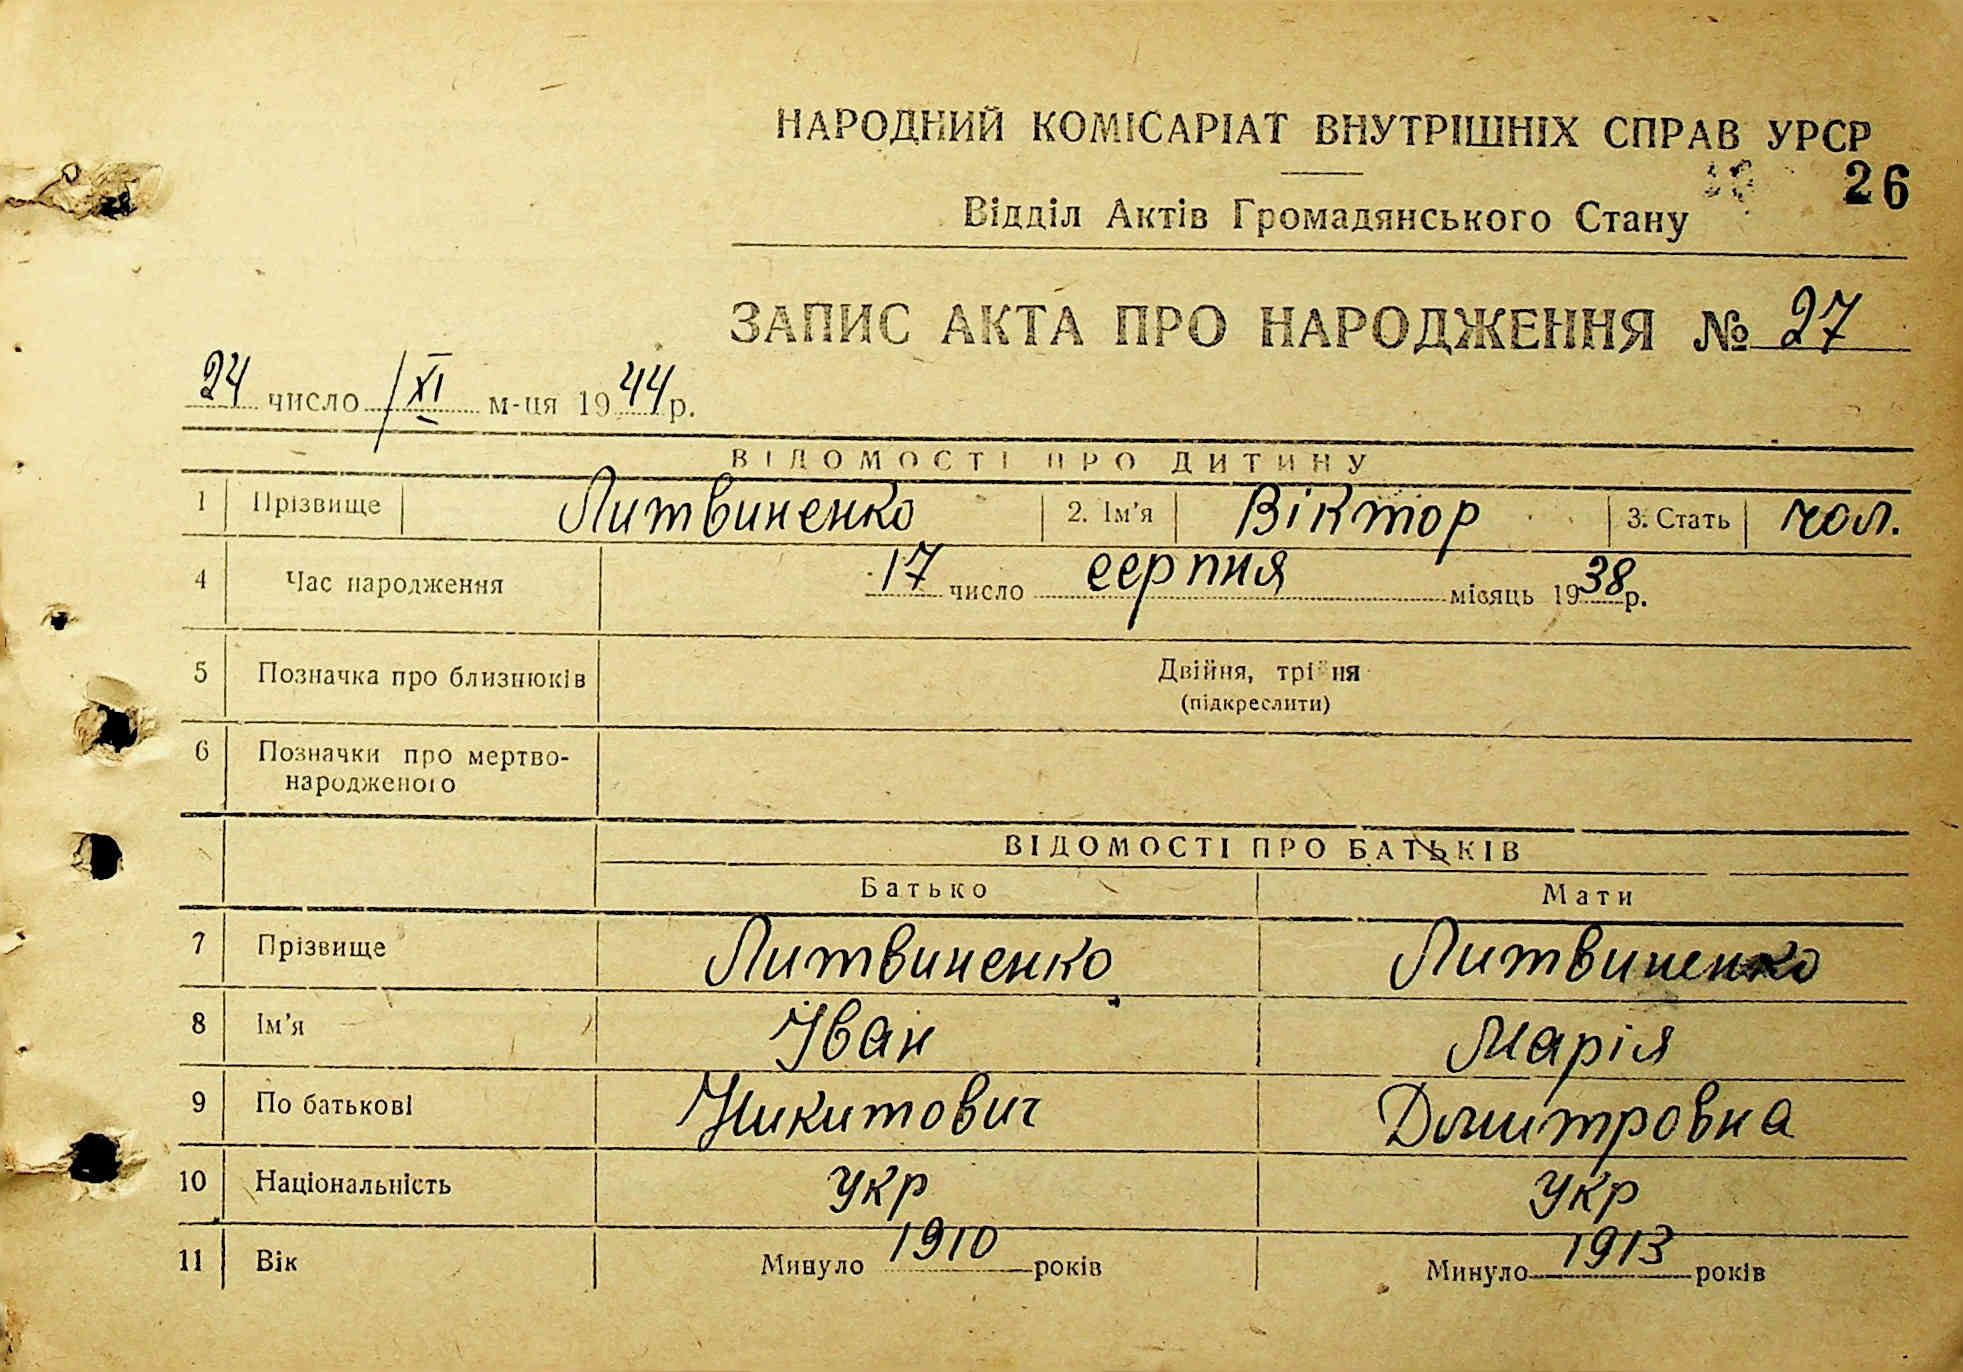 НАРОДНИЙ КОМІСАРІАТ ВНУТРІШНІХ СПРАВ УРСР
26
Відділ Актів Громадянського Стану
ЗАПИС АКТА ПРО НАРОДЖЕННЯ № 27
24 число /XI м-ця 1944 р.
ВІДОМОСТІ ПРО ДИТИНУ
1 Прізвище Литвиненко 2. Ім’я Віктор 3. Стать чол.
4 Час народження 17 число серпня місяць 1938 р.
5 Позначка про близнюків Двійня, трійня
(підкреслити)
6 Позначки про мертво-
народженого
ВІДОМОСТІ ПРО БАТЬКІВ
Батько Мати
7 Прізвище Литвиненко Литвиненко
8 Ім’я Іван Марія
9 По батькові Никитович Дмитровна
10 Національність укр укр
11 Вік Минуло 1910 років Минуло 1913 років